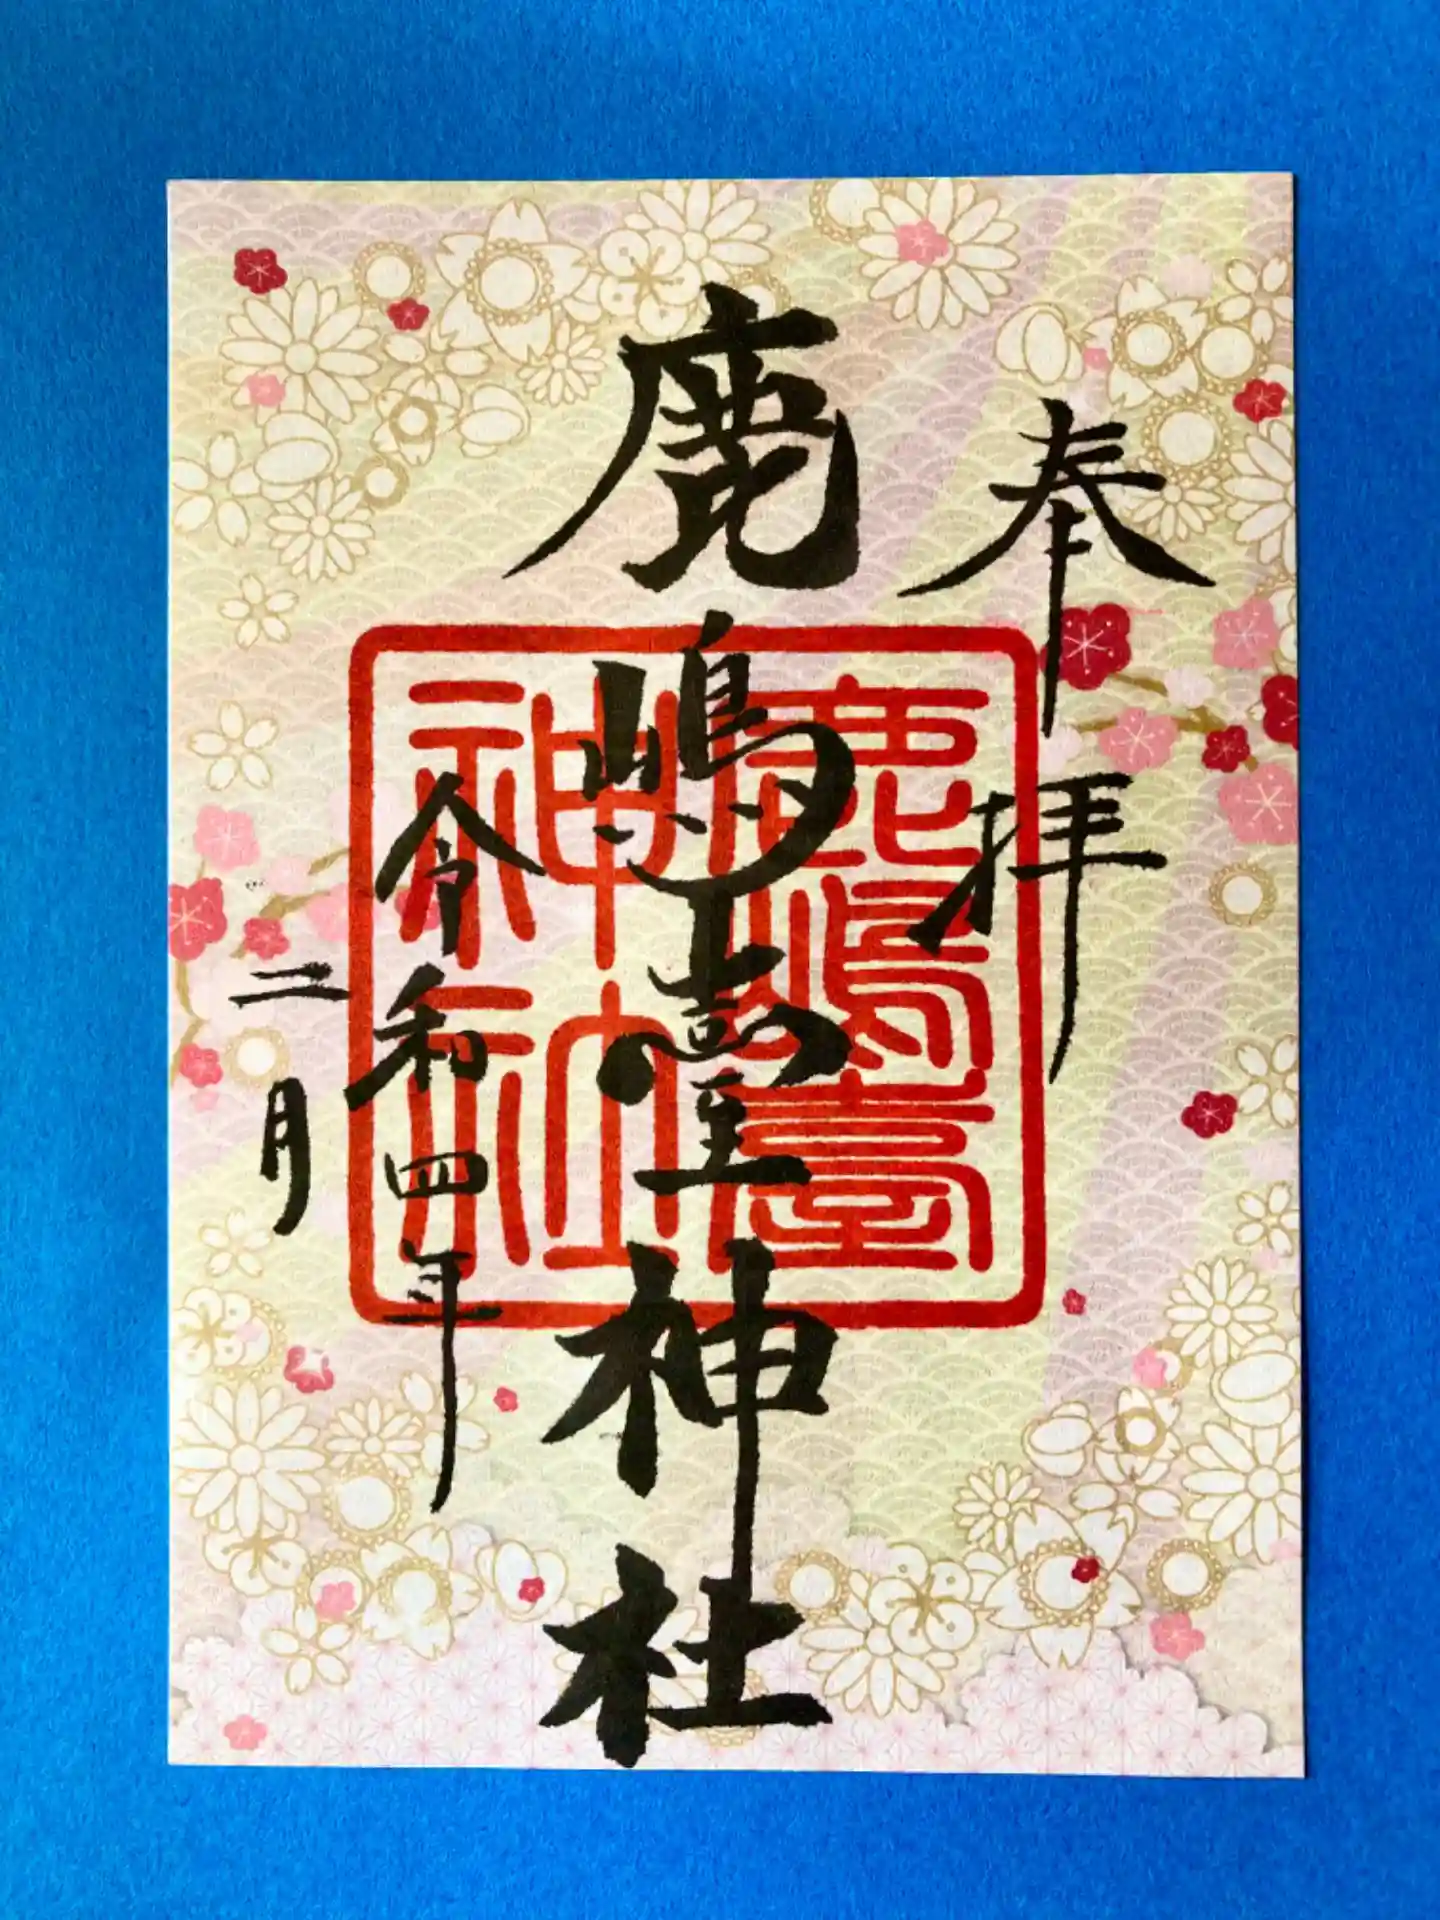 奉拝
鹿嶋臺神社
鹿嶋臺
神社
令和四年
二月